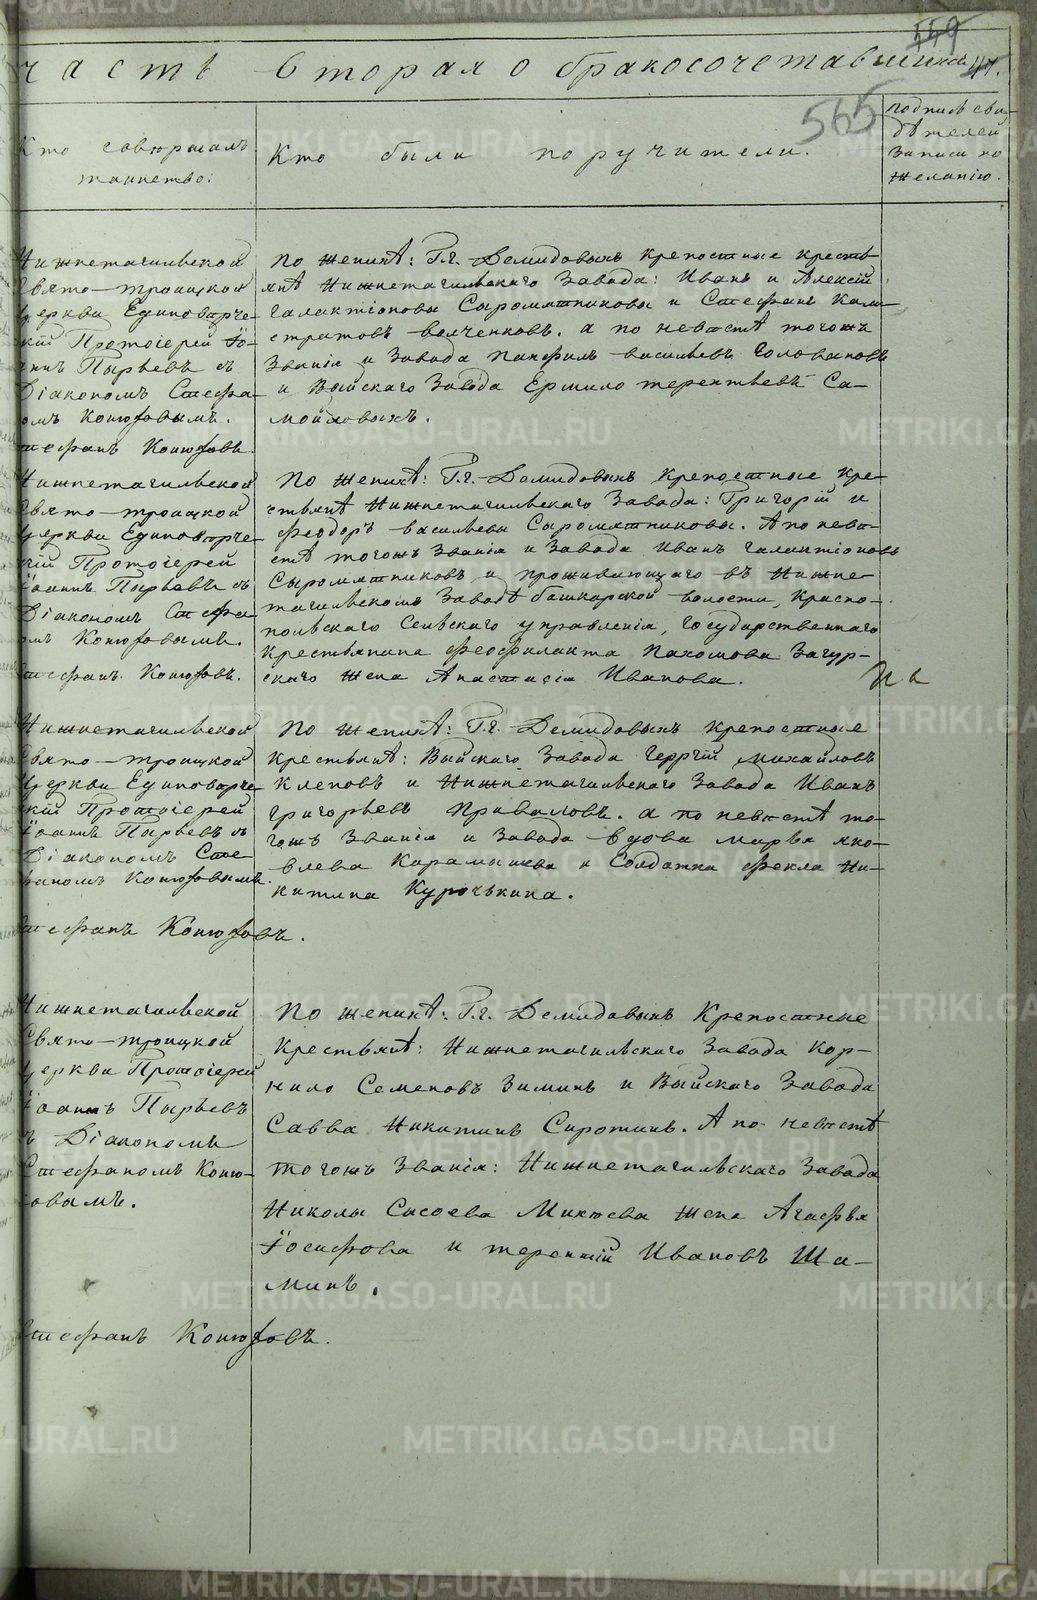 559
часть вторая о бракосочетавшихся 47.
565
Кто совершалъ
таинство:
Кто были поручители.
подпись сви-
дѣтелей
записи по
желанію.
Нижнетагильской
Свято-троицкой
Церкви Единовѣрче-
скій Протоіерей Іо-
аннъ Пырьевъ съ
Діакономъ Стефа-
номъ Конюховымъ.
Стефанъ Конюховъ.
По женихѣ: Г.г. Демидовыхъ крепостные кресть-
янѣ Нижнетагильскаго Завода: Иванъ и Алексій
Галактіоновы Сыромятниковы и Стефанъ Кали-
стратовъ волченковъ. а по невѣстѣ тогожъ
Званія и Завода Панфилъ васильевъ Головановъ
и Выйскаго Завода Ермило терентьевъ Са-
мойловыхъ.
Нижнетагильской
Свято-троицкой
Церкви Единовѣрче-
скій Протоіерей
Іоаннъ Пырьевъ съ
Діакономъ Стефа-
номъ Конюховымъ.
Стефанъ Конюховъ.
По женихѣ: Г.г. Демидовыхъ крепостные кре-
стьянѣ Нижнетагильскаго Завода: Григорій и
Феодоръ васильевы Сыромятниковы. А по невѣ-
стѣ тогожъ Званія и Завода Иванъ галактіоновъ
Сыромятниковъ и проживающаго въ Нижне-
тагильскомъ Заводѣ башкарской волости, Краснo-
польскаго Сельскаго управленія, Государственнаго
Крестьянина Феофилакта Пахомова Загур-
скаго жена Анастасія Иванова.
Нижнетагильской
Свято-троицкой
Церкви Единовѣрче-
скій Протоіерей
Іоаннъ Пырьевъ съ
Діакономъ Сте-
фаномъ Конюховымъ.
Стефанъ Конюховъ.
По женихѣ: Г.г. Демидовыхъ крепостные
Крестьянѣ: Выйскаго Завода Георгій михайловъ
Клеповъ и Нижнетагильскаго Завода Иванъ
григорьевъ Приваловъ. а по невѣстѣ то-
гожъ Званія и Завода вдова марья яко-
влева Карамышева и Солдатка Фекла Ни-
китина Курочькина.
Нижнетагильской
Свято-троицкой
Церкви Протоіерей
Іоаннъ Пырьевъ
съ Діакономъ
Стефаномъ Коню-
ховымъ.
Стефанъ Конюховъ.
По женихѣ: Г.г. Демидовыхъ Крепостные
Крестьянѣ: Нижнетагильскаго Завода Кор-
нило Семеновъ Зиминъ и Выйскаго Завода
Савва Никитинъ Сиротинъ. А по невѣстѣ
тогожъ Званія: Нижнетагильскаго Завода
Николы Сысоева Микюева жена Агафья
Іосифова и терентій Ивановъ Ша-
минъ.
METRIKI.GASO-URAL.RU